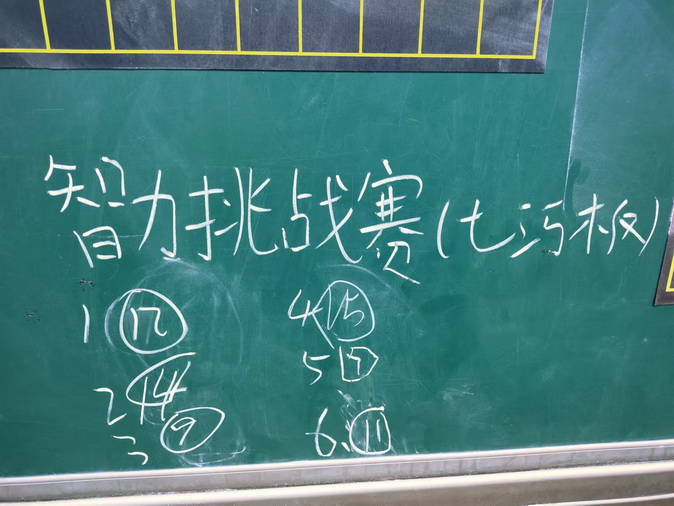 智力挑战赛(七巧板)
1 17 4 15
2 14 5 7
3 9 6、11